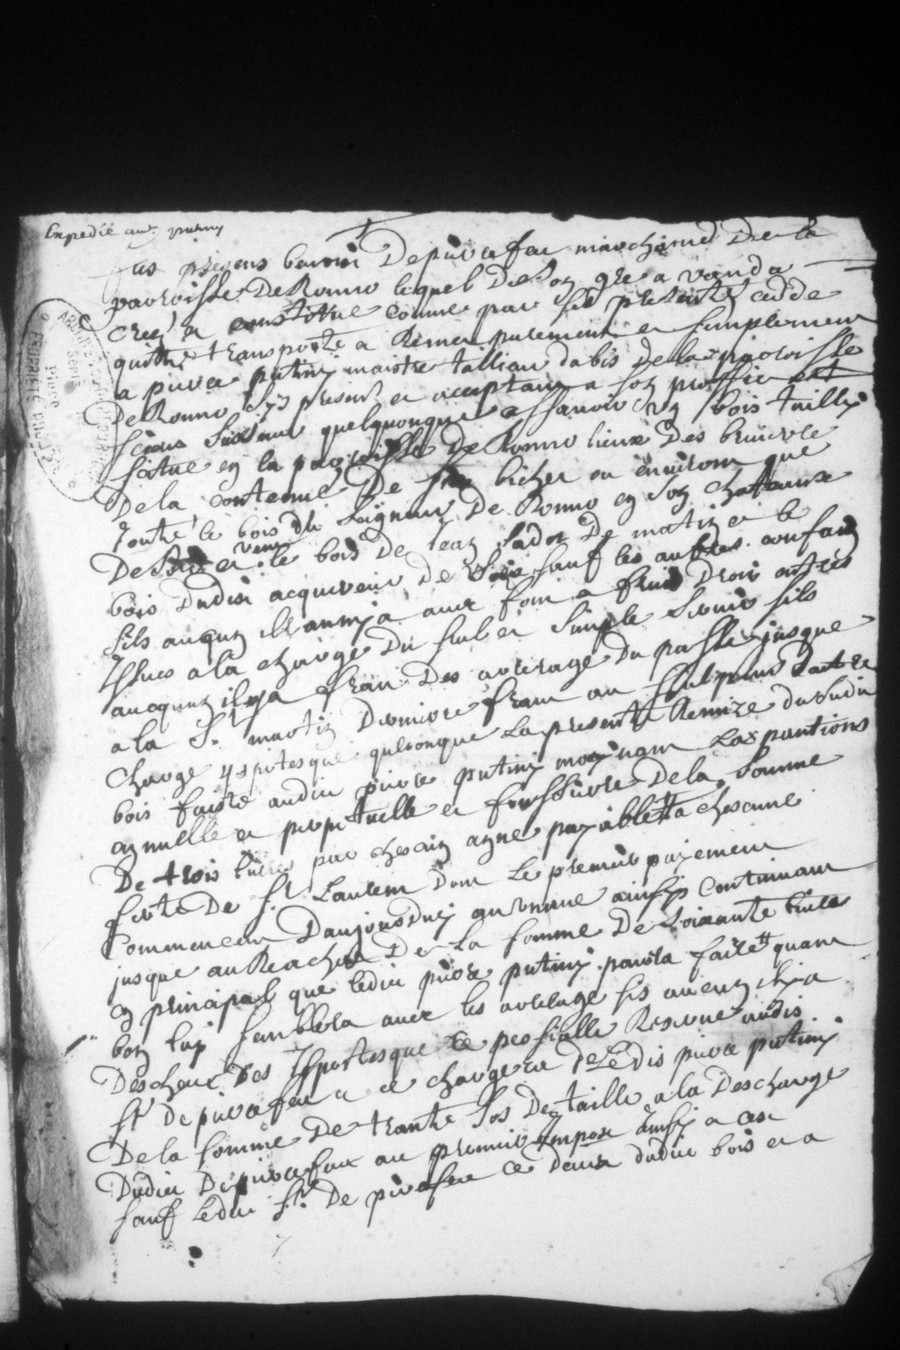 Expedié aud. putiny
fus presens benoin Depierrefeu marchand De la
parroisse De Ronno lequel De Son gre a vandu
Creé et constitue comme par Ses presente cedde
quitte transporte a Remes purement et Simplement
a pierre putiny maistre tallieur dabis De la paroisse
De Ronno Isy present et acceptant a son proffic et
Sieus quelquonque assavoir Un bois tailly
Scitue en la parroisse De Ronno lieux Des bruiere
De la contenue De bichet ou environt que
Jouxte le bois du Seigneur De Ronno en Son chateaux
De vent le bois De Jean Sadot De matin et le
bois Dudit acquereur De Soir Sauf les autres confain
Sils auqun Il annya aux fon a fruit Droit antres
Issues a la charge Du Seul et Simple Servis sils
auqunt il ya fran Des arerage Du passe jusque
a la St. martin Derniere franc au Surplus Dautre
charge Yspotesque quelconque La presente Remize du Sudit
bois faiste audit pierre putiny moyenant La pantions
annuelle et perpetuelle et fonssiere De la Somme
De trois livres par chesain anne payablett a chescune
feste De St Laurem Dont Le premier payement
Commencera Daujourduy an venne ainsy Continuant
jusque au Reachet De La Somme De Soixante livres
en principal que ledit pierre putiny poura fairett quant
bon luy Semblera avec les arerage sis auenz Ihia
Descheux Des Ysportesque et pessialle Reserve audit
St. De pierrefeu a ce charge et De Ledis pierre putiny
De la Somme De trante Sos De taille a la Descharge
Dudit De pierrefeux au premier Impos ainsy a ce
Sauf Ledit St. De pierrefeu ce Devest dudit bois et a